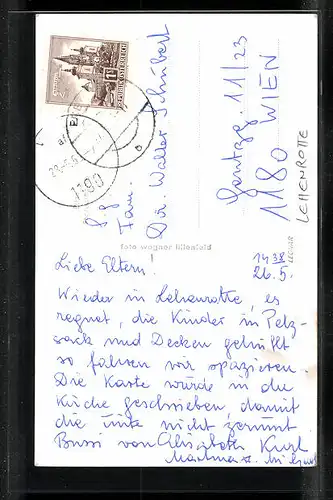 REPUBLIK ÖSTERREICH
1190
S.g
Fam.
Dr. Walter Schubert
Gentzg. 11/23
1180 WIEN
LEHENROTTE
foto wagner lilienfeld
26.5.
Liebe Eltern!
Wieder in Lehenrotte, es
regnet, die Kinder in Pelz-
sack und Decken gehüllt
so fahren wir spazieren.
Die Karte wurde in der
Küche geschrieben, damit
die Tinte nicht zerrinnt
Bussi von Elisabeth Kurt
Martina